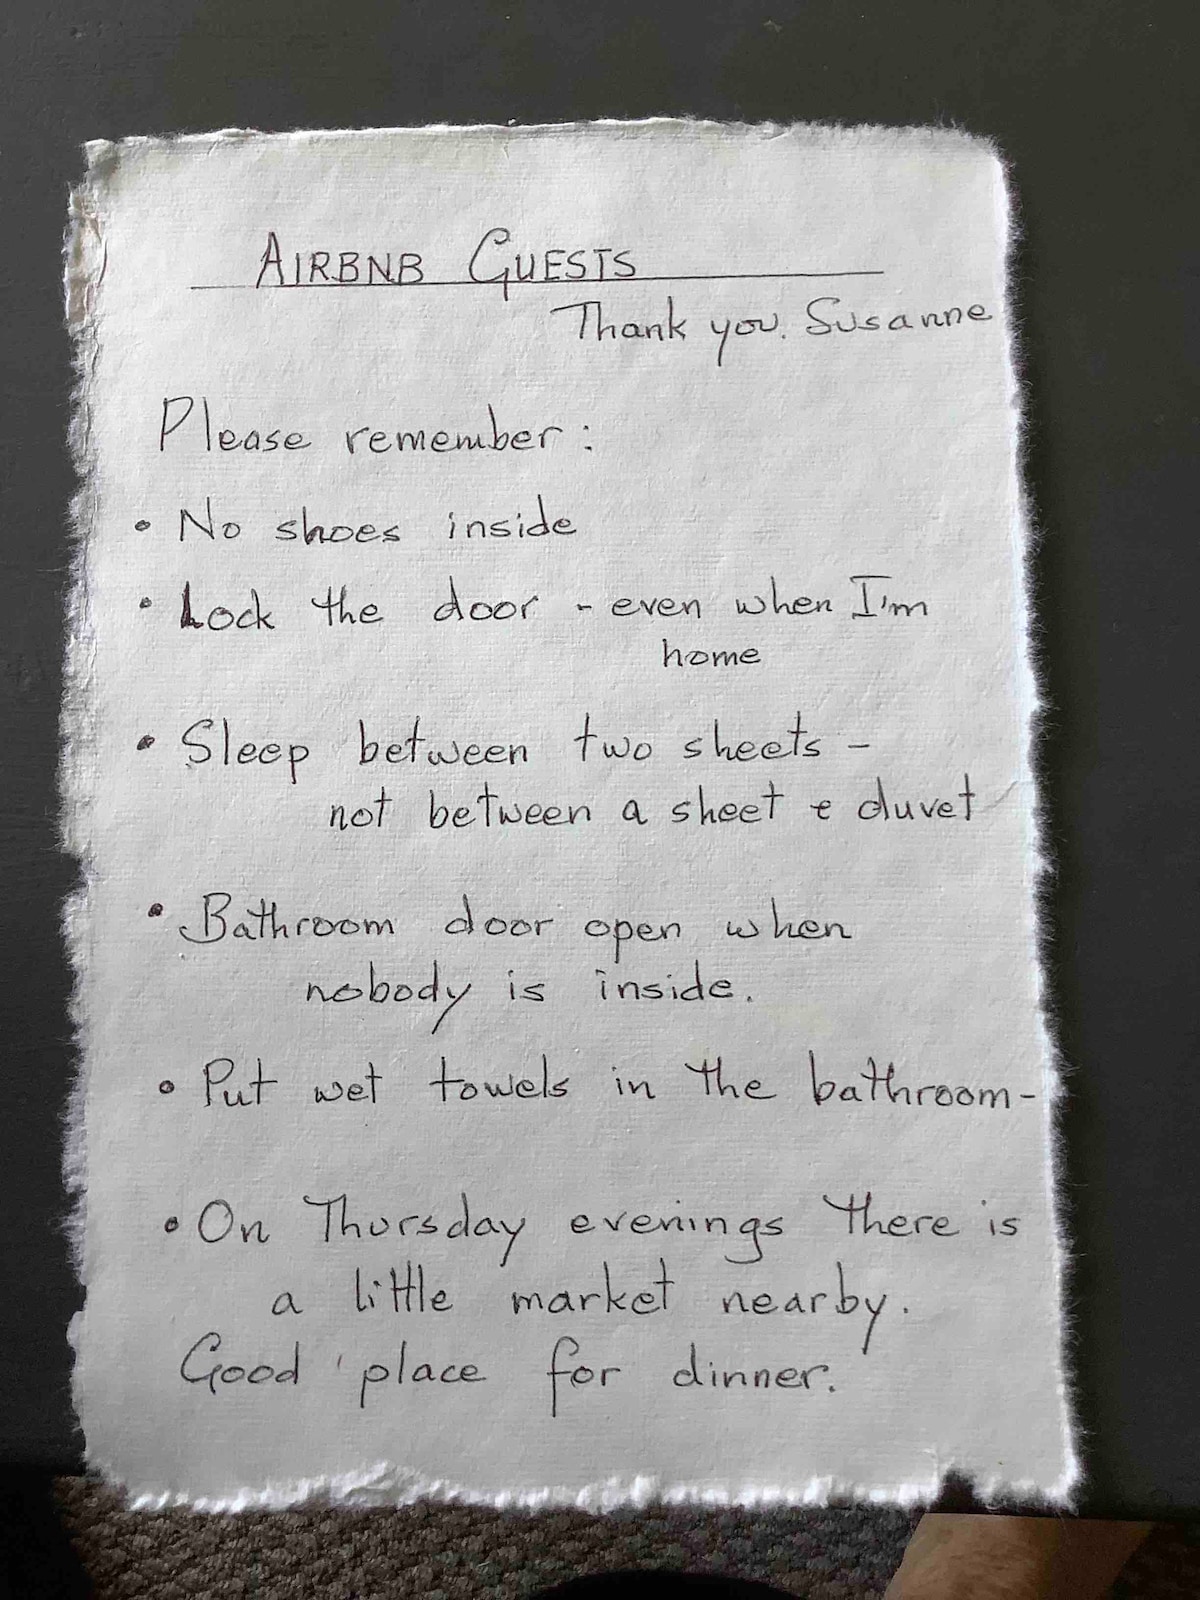 AIRBNB GUESTS
Thank you. Susanne
Please remember:
• No shoes inside
• Lock the door - even when I'm
home
• Sleep between two sheets -
not between a sheet & duvet
• Bathroom door open when
nobody is inside.
• Put wet towels in the bathroom-
• On Thursday evenings there is
a little market nearby.
Good place for dinner.